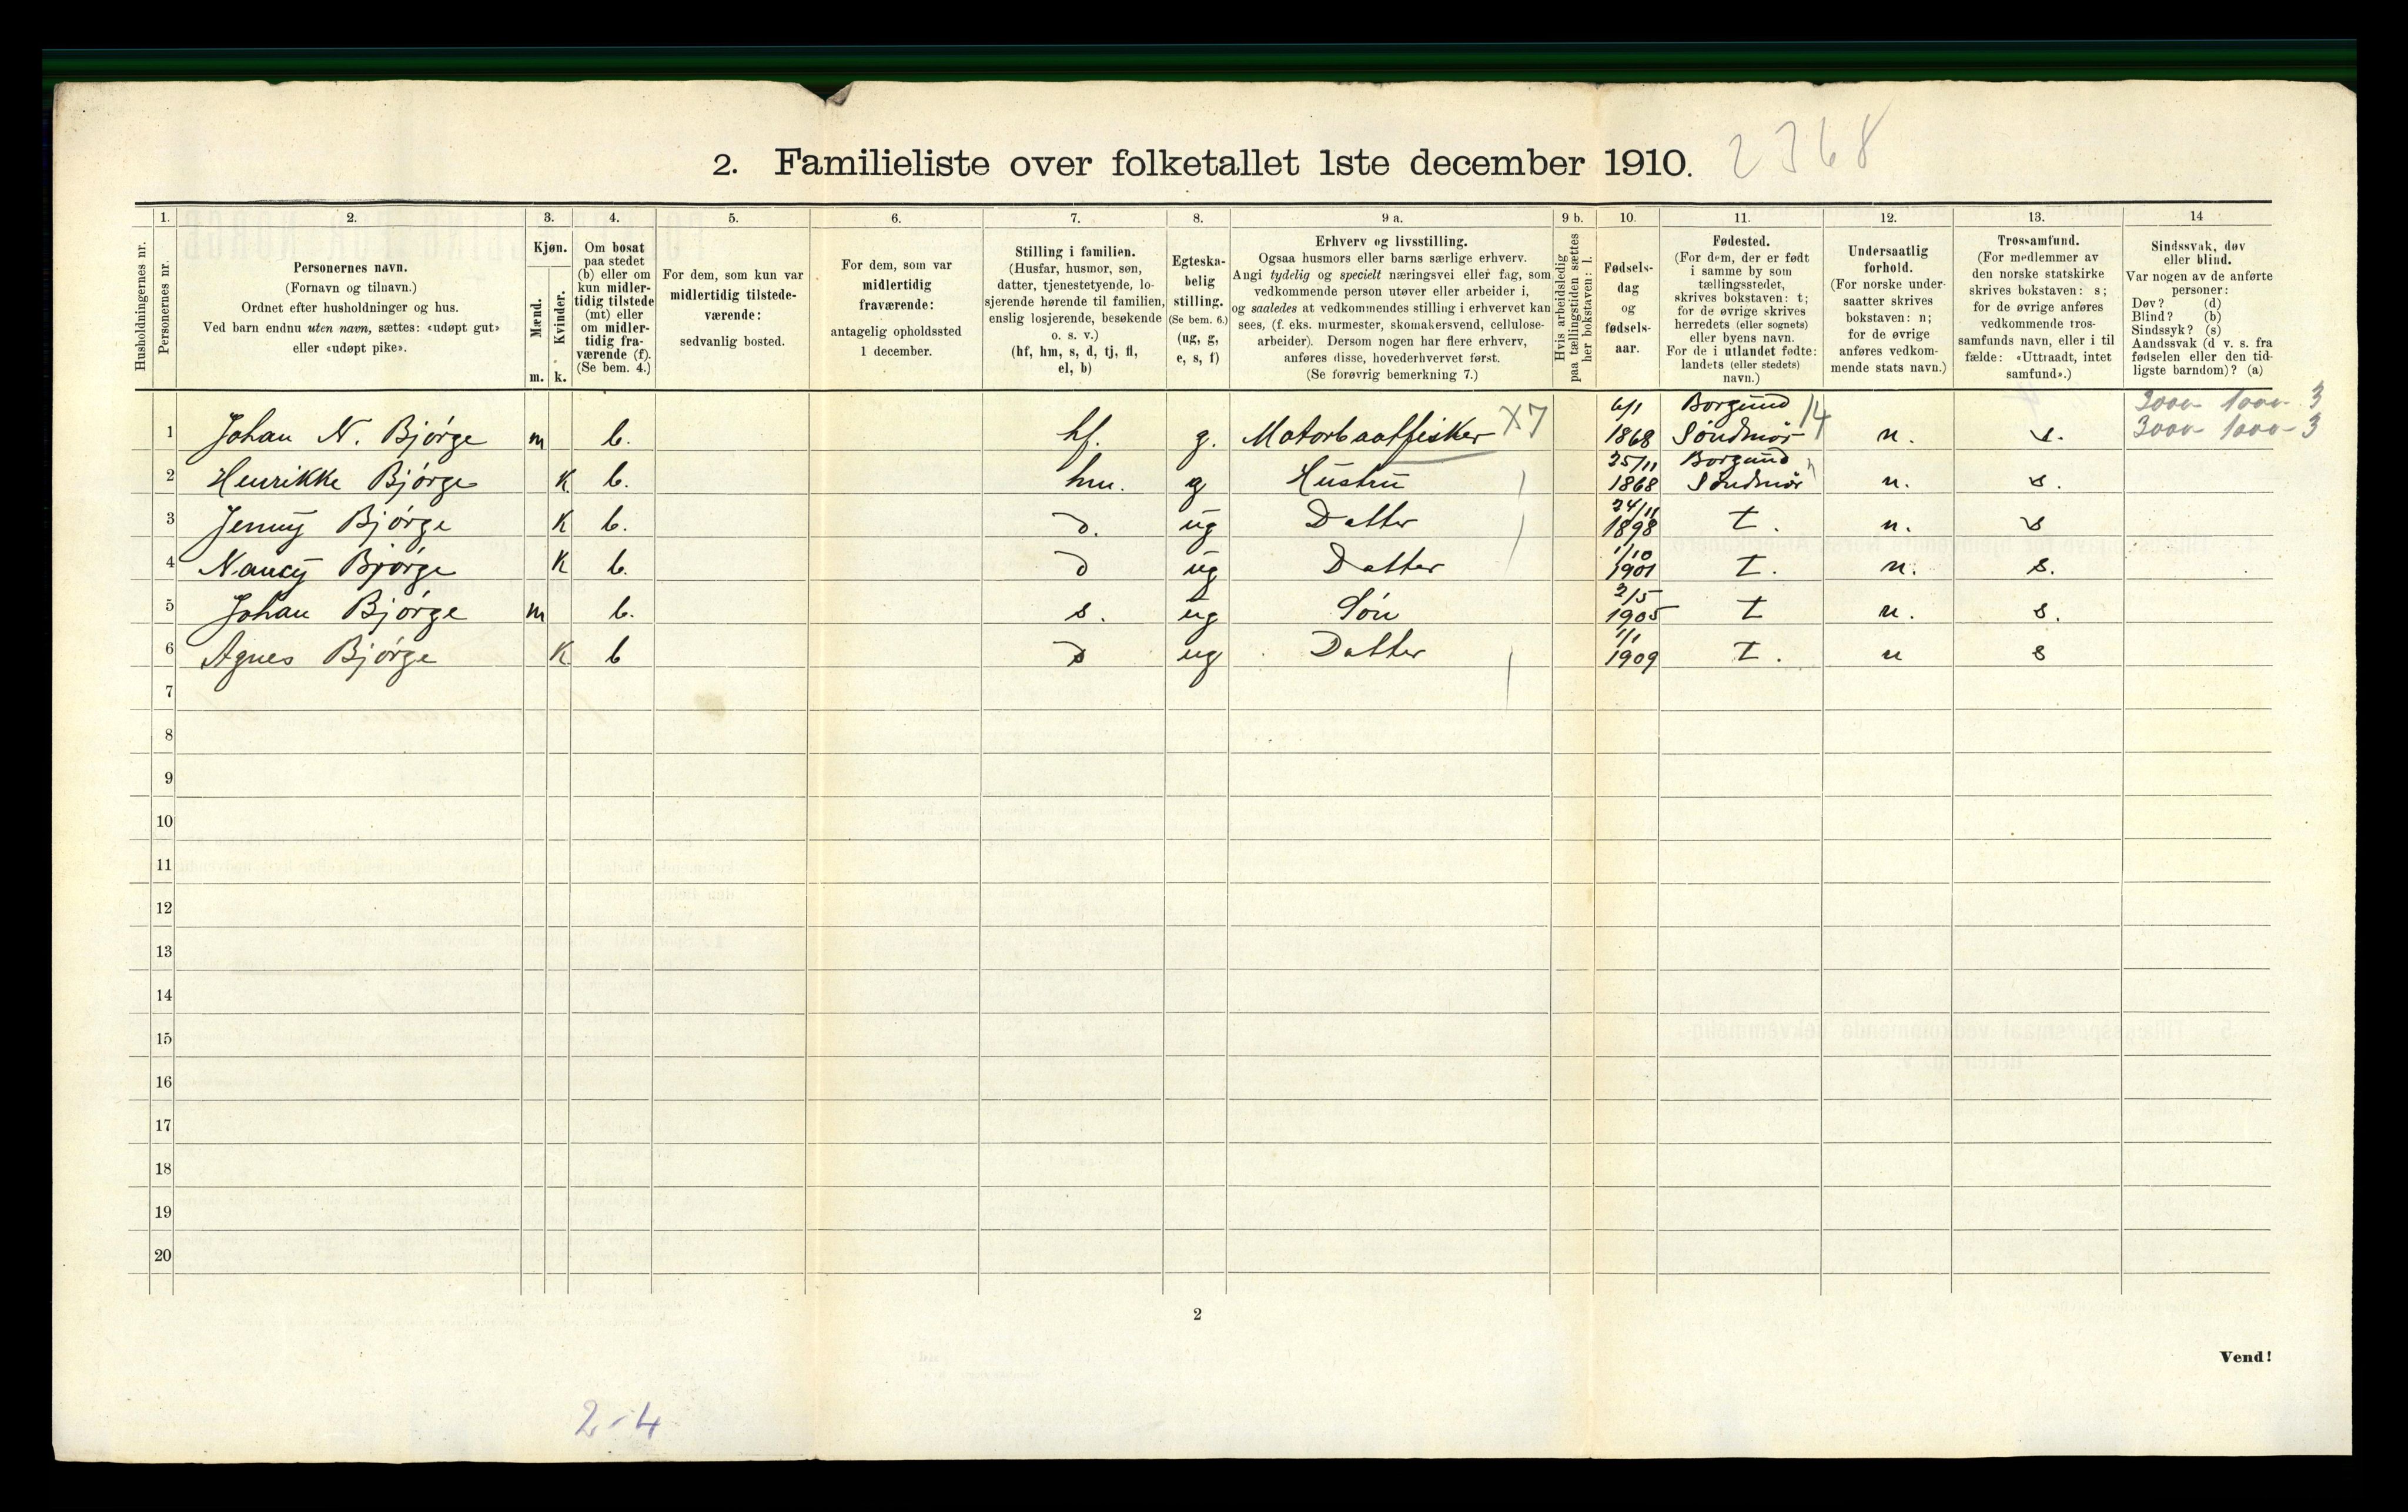 2. Familieliste over folketallet 1ste december 1910. 2368
Husholdningernes nr.
1.
Personernes nr.
2.
Personernes navn.
(Fornavn og tilnavn.)
Ordnet efter husholdninger og hus.
Ved barn endnu uten navn, sættes: «udøpt gut»
eller «udøpt pike».
3.
Kjøn.
Mænd.
Kvinder.
m. k.
4.
Om bosat
paa stedet
(b) eller om
kun midler-
tidig tilstede
(mt) eller
om midler-
tidig fra-
værende (f).
(Se bem. 4.)
5.
For dem, som kun var
midlertidig tilstede-
værende:
sedvanlig bosted.
6.
For dem, som var
midlertidig
fraværende:
antagelig opholdssted
1 december.
7.
Stilling i familien.
(Husfar, husmor, søn,
datter, tjenestetyende, lo-
sjerende hørende til familien,
enslig losjerende, besøkende
o. s. v.)
(hf, hm, s, d, tj, fl,
el, b)
8.
Egteska-
belig
stilling.
(Se bem. 6.)
(ug, g,
e, s, f)
9 a.
Erhverv og livsstilling.
Ogsaa husmors eller barns særlige erhverv.
Angi tydelig og specielt næringsvei eller fag, som
vedkommende person utøver eller arbeider i,
og saaledes at vedkommendes stilling i erhvervet kan
sees, (f. eks. murmester, skomakersvend, cellulose-
arbeider). Dersom nogen har flere erhverv,
anføres disse, hovederhvervet først.
(Se forøvrig bemerkning 7.)
9 b.
Hvis arbeidsledig
paa tællingstiden sættes
her bokstaven: l.
10.
Fødsels-
dag
og
fødsels-
aar.
11.
Fødested.
(For dem, der er født
i samme by som
tællingsstedet,
skrives bokstaven: t;
for de øvrige skrives
herredets (eller sognets)
eller byens navn.
For de i utlandet fødte:
landets (eller stedets)
navn.)
12.
Undersaatlig
forhold.
(For norske under-
saatter skrives
bokstaven: n;
for de øvrige
anføres vedkom-
mende stats navn.)
13.
Trossamfund.
(For medlemmer av
den norske statskirke
skrives bokstaven: s;
for de øvrige anføres
vedkommende tros-
samfunds navn, eller i til
fælde: «Uttraadt, intet
samfund».)
14
Sindssvak, døv
eller blind.
Var nogen av de anførte
personer:
Døv? (d)
Blind? (b)
Sindssyk? (s)
Aandssvak (d v. s. fra
fødselen eller den tid-
ligste barndom)? (a)
3000 1000 3
3000 1000 3
1 Johan N. Bjørge m b. hf. g. Motorbaatfisker X7 6/1 1868 Borgund Söndmör 14 n. s.
2 Henrikke Bjørge K b. hm. g Hustru 25/11 1868 Borgund Söndmör n. s.
3 Jenny Bjørge K b. d. ug Datter 24/11 1898 t. n. s
4 Nancy Bjørge K b. d ug Datter 1/10 1901 t. n. s.
5 Johan Bjørge m b. s. ug Sön 2/5 1905 t n. s.
6 Agnes Bjørge K b d ug Datter 1/1 1909 t. n s
7
8
9
10
11
12
13
14
15
16
17
18
19
20
2
Vend!
2-4